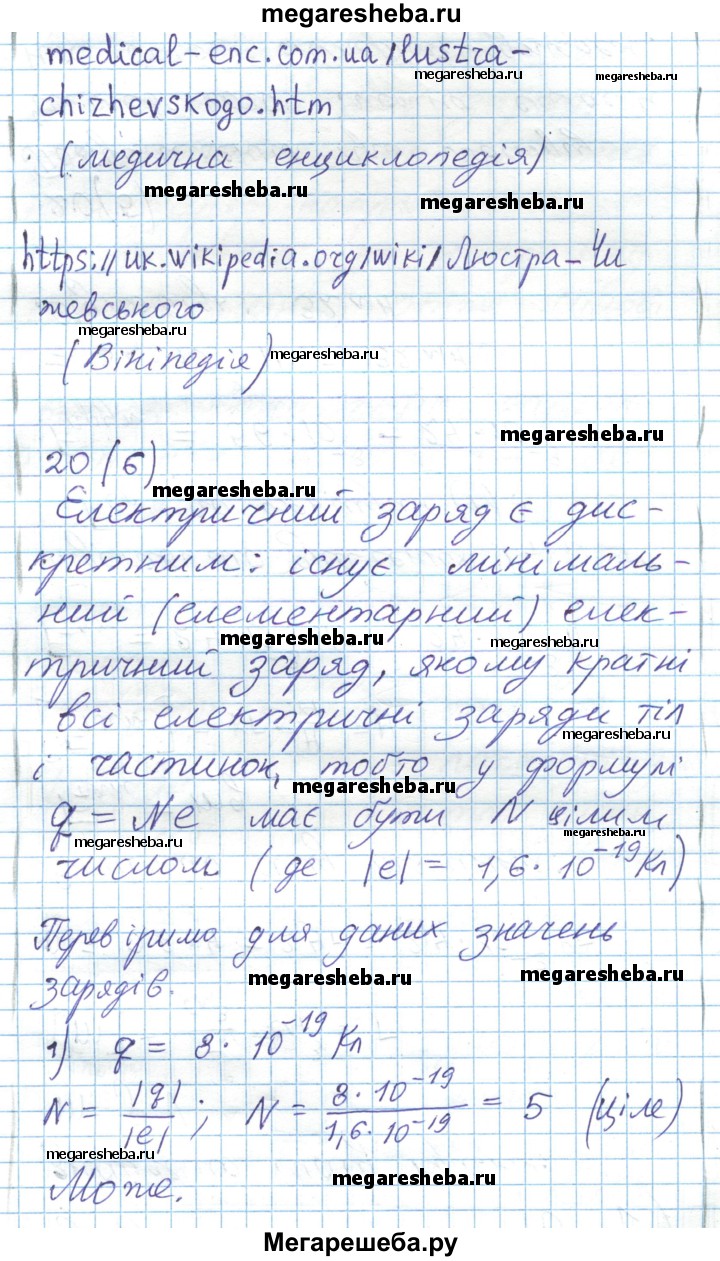 megaresheba.ru
medical-enc.com.ua/lustra-
megaresheba.ru
megaresheba.ru
chizhevskogo.htm
(медична енциклопедія)
megaresheba.ru
megaresheba.ru
https://uk.wikipedia.org/wiki/Люстра-Чи
жевського
megaresheba.ru
(Вікіпедія)
megaresheba.ru
megaresheba.ru
20 (6)
megaresheba.ru
Електричний заряд є дис-
кретним: існує мінімаль-
ний (елементарний) елек-
megaresheba.ru
megaresheba.ru
тричний заряд, якому кратні
всі електричні заряди тіл
megaresheba.ru
і частинок, тобто у формулі
megaresheba.ru
q = Ne має бути N цілим
megaresheba.ru
megaresheba.ru
числом (де |e| = 1,6·10⁻¹⁹ Кл)
Перевіримо для даних значень
megaresheba.ru
megaresheba.ru
зарядів.
1) q = 8·10⁻¹⁹ Кл
N = |q|/|e|; N = 8·10⁻¹⁹/1,6·10⁻¹⁹ = 5 (ціле)
megaresheba.ru
megaresheba.ru
Може.
Мегарешеба.ру